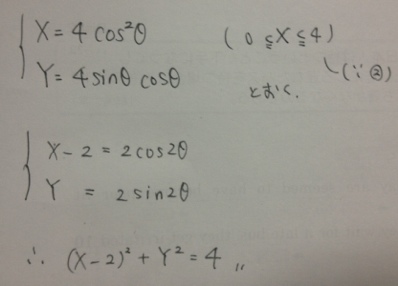 X = 4 cos²θ (0 ≦ X ≦ 4)
Y = 4 sinθ cosθ (∵ ②)
とおく.
X - 2 = 2 cos 2θ
Y = 2 sin 2θ
∴ (X - 2)² + Y² = 4 〃